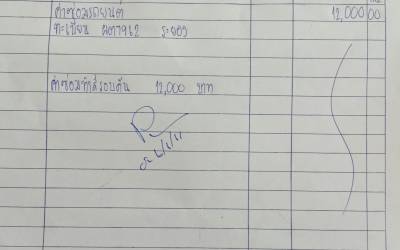 ค่าซ่อมรถยนต์ 12,000 00
ทะเบียน ผต7912 ระยอง
ค่าซ่อมทำสีรอบคัน 12,000 บาท